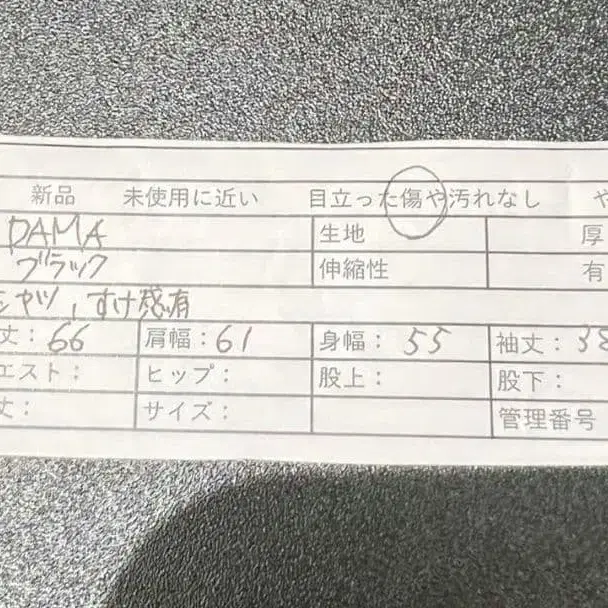 新品 未使用に近い 目立った傷や汚れなし や
DAMA 生地 厚
ブラック 伸縮性 有
シャツ, すけ感有
丈: 66 肩幅: 61 身幅: 55 袖丈: 38
エスト: ヒップ: 股上: 股下:
丈: サイズ: 管理番号